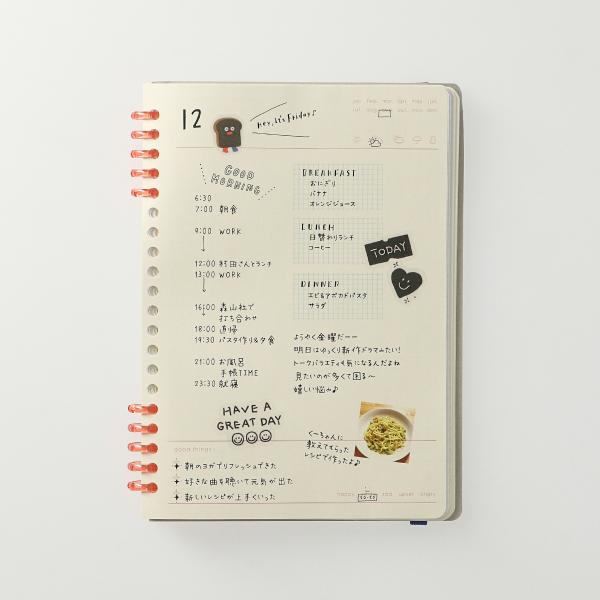 12
Hey, It's Friday♪
GOOD
MORNING
6:30
7:00 朝食
9:00 WORK
12:00 村田さんとランチ
13:00 WORK
16:00 森山社で
打ち合わせ
18:00 直帰
19:30 パスタ作り&夕食
21:00 お風呂
手帳TIME
23:30 就寝
BREAKFAST
おにぎり
バナナ
オレンジジュース
LUNCH
日替わりランチ
コーヒー
DINNER
エビ&アボカドパスタ
サラダ
TODAY
ようやく金曜だーー
明日はゆっくり新作ドラマみたい!
トークバラエティも気になるんだよね
見たいのが多くて困る〜
嬉しい悩み♪
HAVE A
GREAT DAY
くーちゃんに
教えてもらった
レシピで作ったよ♪
good things:
朝のヨガでリフレッシュできた
好きな曲を聴いて元気が出た
新しいレシピが上手くいった
happy so-so sad upset angry